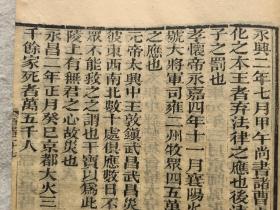 永興二年七月甲午尚書諸曹
化之本王者弃法律之應也後清
子之罰也
孝懷帝永嘉四年十一月襄陽火
號大將軍司雍二州牧眾四五萬
之應也
元帝太興中王敦鎮武昌武昌災
彼東西南北數十處俱應數日不
眾不能救之之謂也干寶以爲此
陵上有無君之心故災也
永昌二年正月癸巳京都大火三
千餘家死者萬五千人